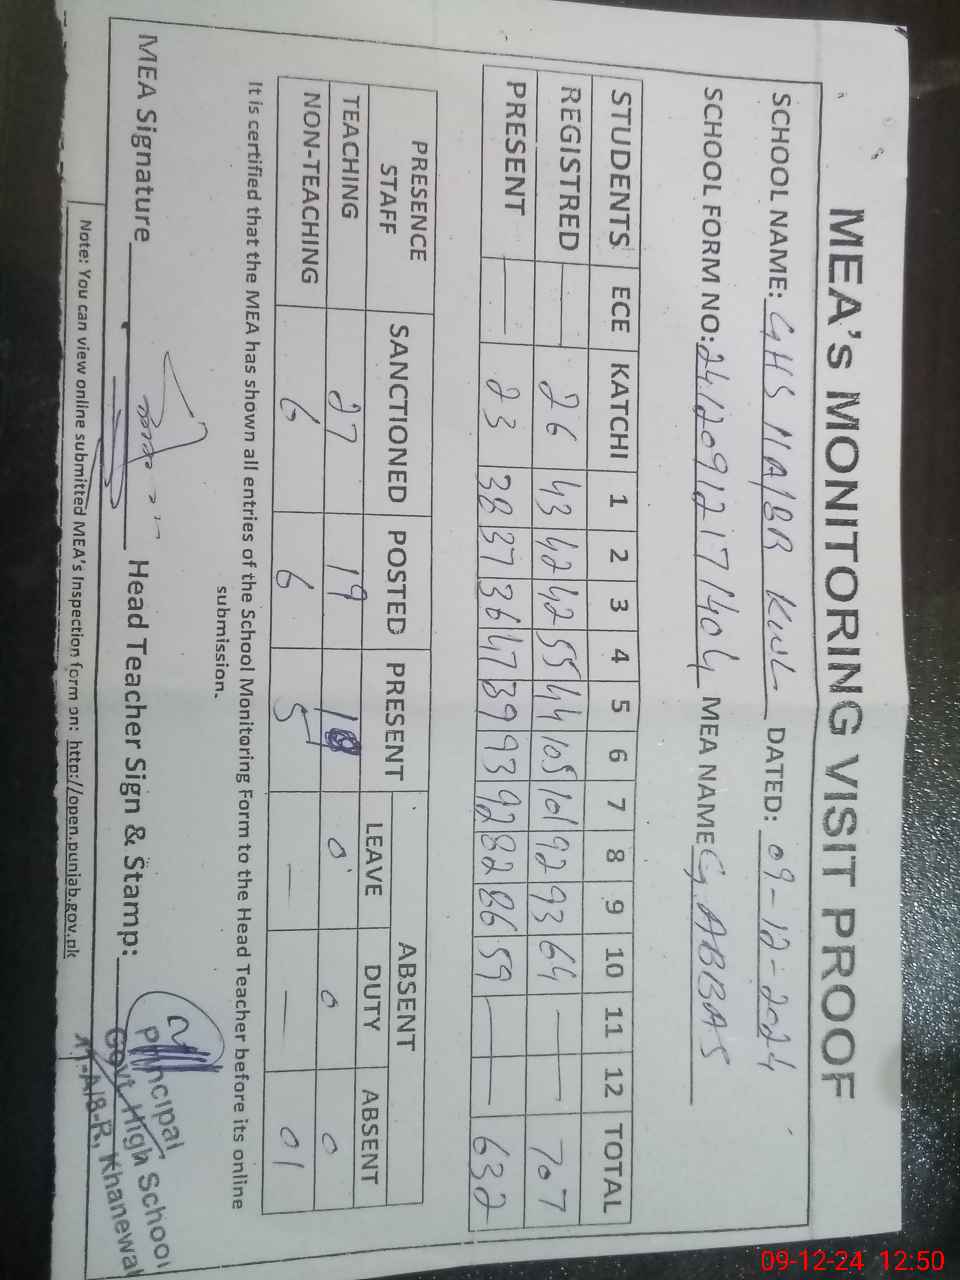 MEA's MONITORING VISIT PROOF
SCHOOL NAME: GHS 11A/8R KWL DATED: 09-12-2024
SCHOOL FORM NO: 24120912171404 MEA NAME G. ABBAS
STUDENTS ECE KATCHI 1 2 3 4 5 6 7 8 9 10 11 12 TOTAL
REGISTRED — 26 43 42 42 55 44 105 101 92 93 64 — — 707
PRESENT — 23 38 37 36 47 39 93 92 82 86 59 — — 632
PRESENCE STAFF SANCTIONED POSTED PRESENT ABSENT
LEAVE DUTY ABSENT
TEACHING 27 19 0 0 0
NON-TEACHING 6 6 5 — — 01
It is certified that the MEA has shown all entries of the School Monitoring Form to the Head Teacher before its online
submission.
MEA Signature Head Teacher Sign & Stamp:
Principal
Govt. High School
11-A/8-R, Khanewal
Note: You can view online submitted MEA's Inspection form on: http://open.punjab.gov.pk
09-12-24 12:50